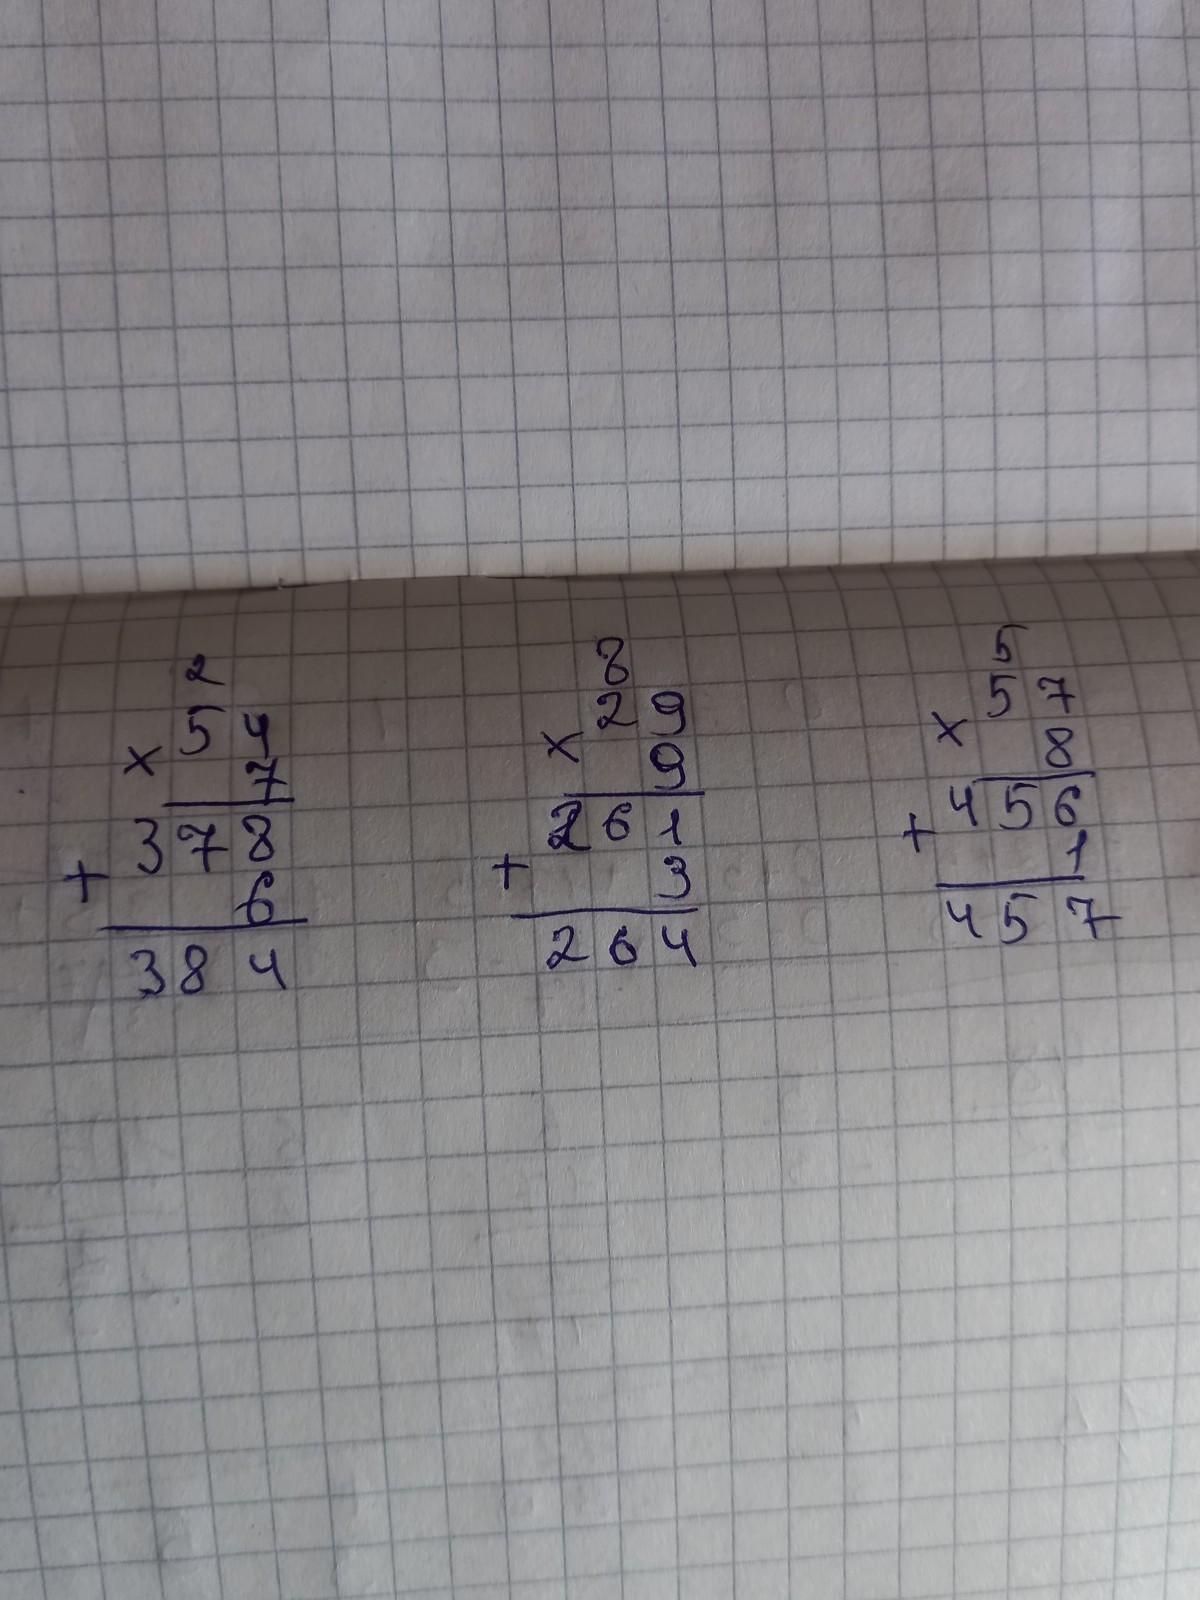 2
54
× 7
378
+ 6
384
8
29
× 9
261
+ 3
264
5
57
× 8
456
+ 1
457